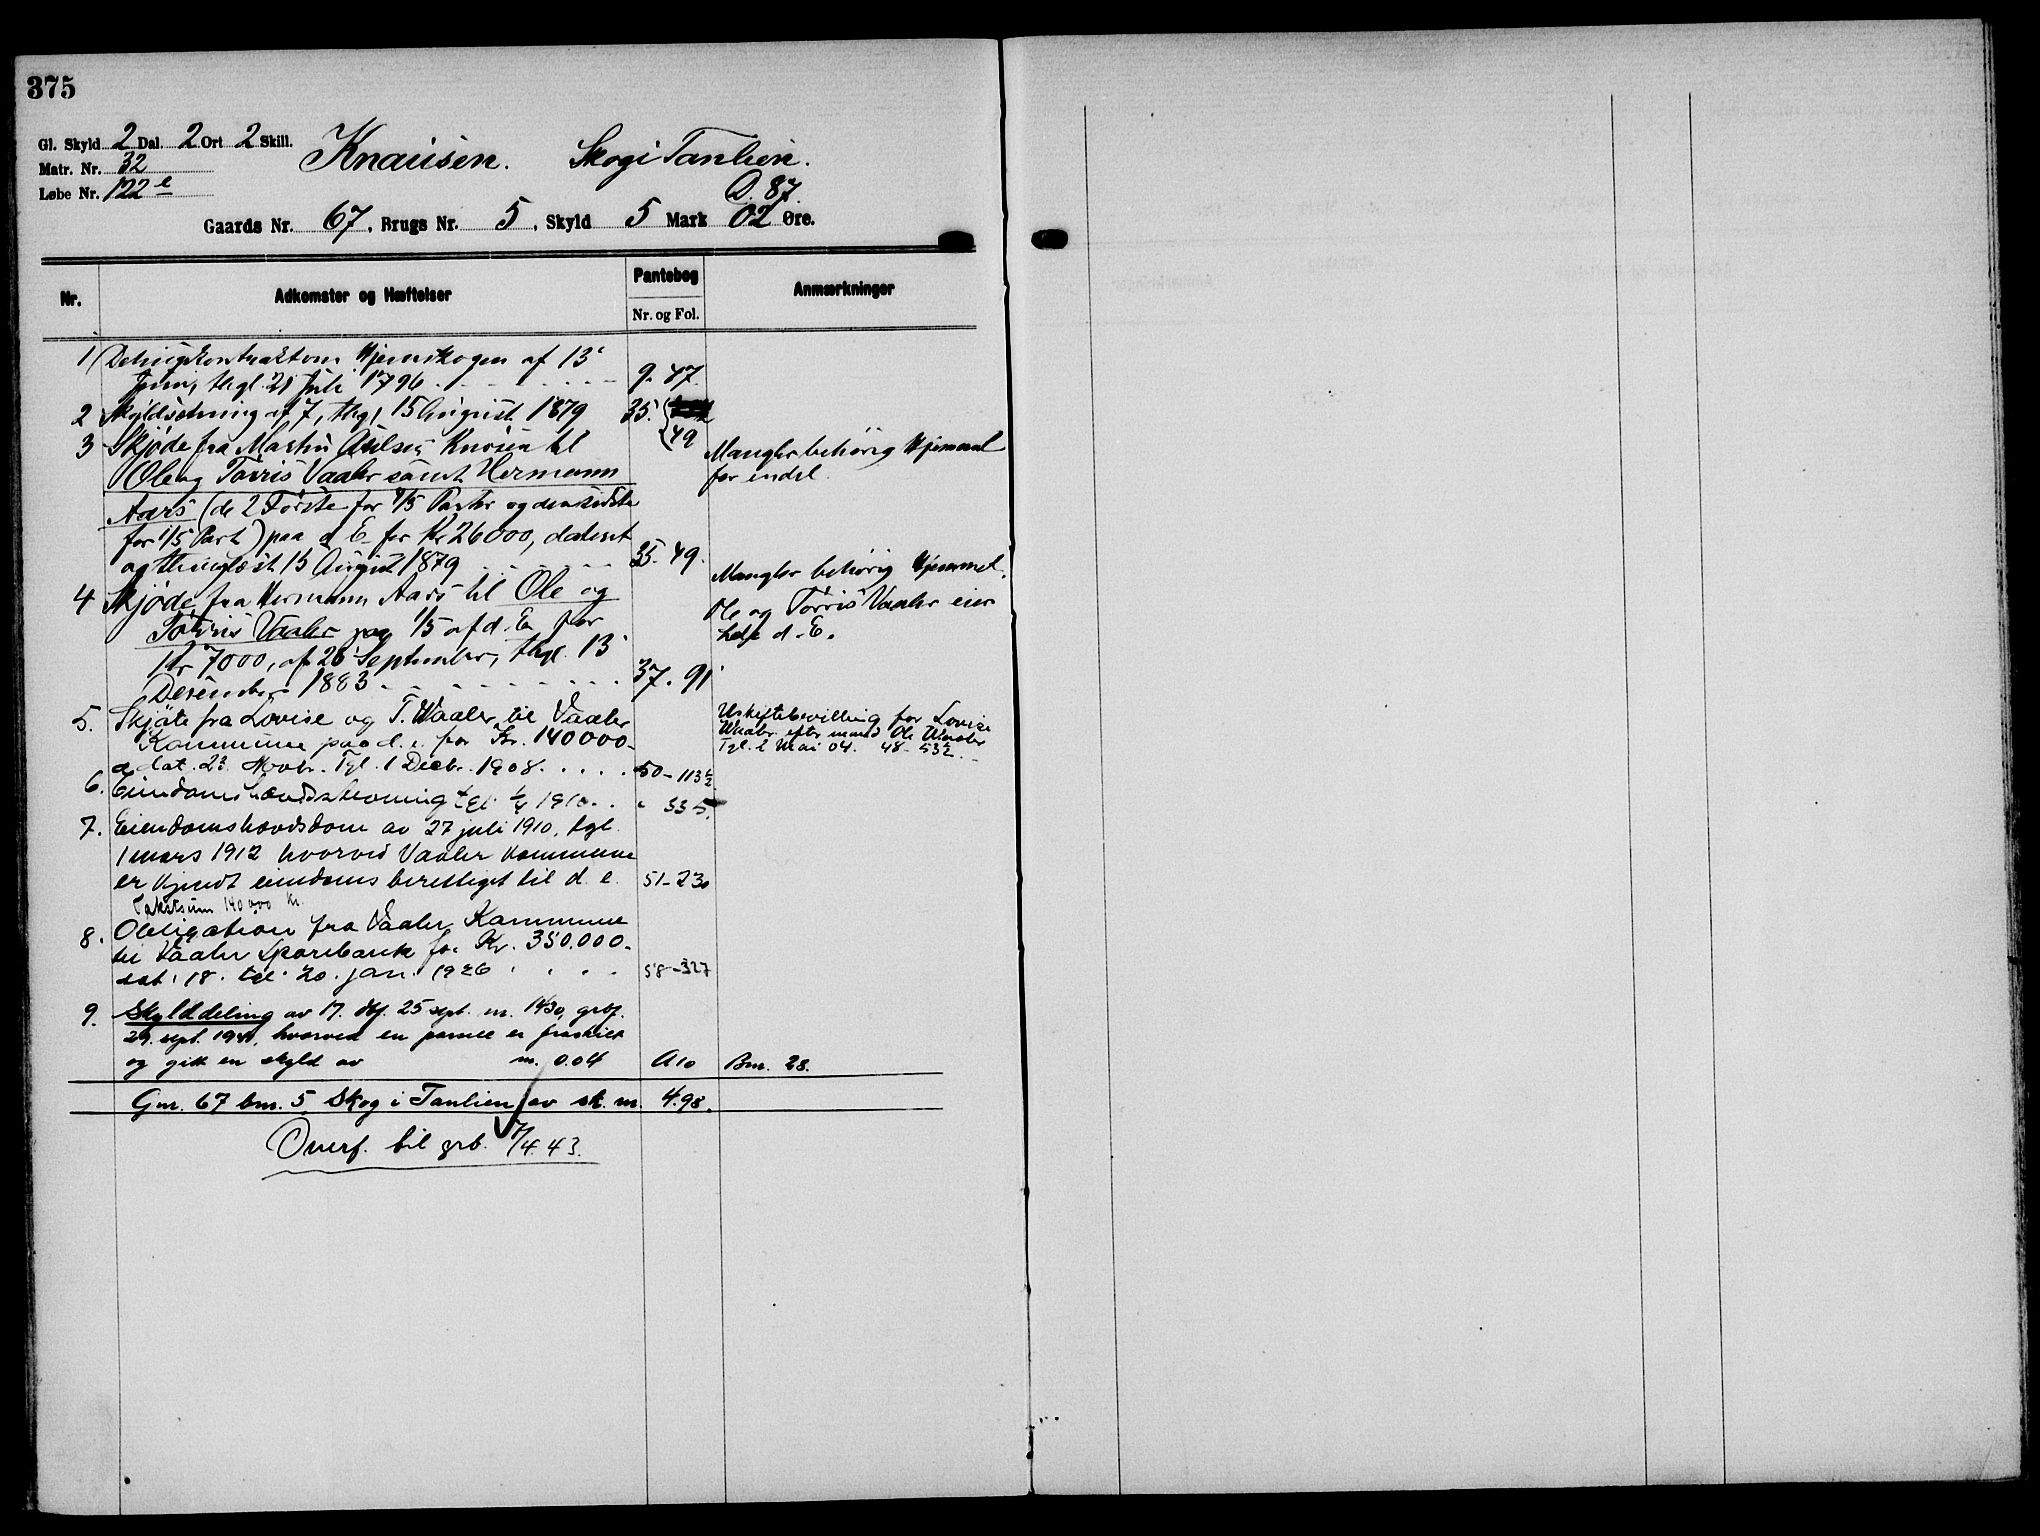 375
Gl. Skyld 2 Dal. 2 Ort 2 Skill.
Matr. Nr. 32
Løbe Nr. 122 e
Knausen. Skog i Tanlien.
D. 87.
Gaards Nr. 67, Brugs Nr. 5, Skyld 5 Mark 02 Øre.
Nr. Adkomster og Hæftelser Pantebog Anmærkninger
Nr. og Fol.
1) Delingskontrakt om Hjemskogen af 13'
Juni, thgl. 21 Juli 1796 9. 47.
2 Skyldsetning af 7, thgl 15 August 1879 35. 49
3 Skjøde fra Martin til
Ole og Torris Vaaler samt Hermann
Aars (de 2 Første for 4/5 Parter og den sidste
for 1/5 Part) paa d. E. for Kr 26000, dateret
og thinglæst 15 August 1879 35. 49.
Mangler behørig Hjemmel
for endel.
4 Skjøde fra Hermann Aars til Ole og
Torris Vaaler paa 1/5 af d. E. for
Kr 7000, af 26 September, thgl. 13
Desember 1883 37. 91
Mangler behørig Hjemmel.
Ole og Torris Vaaler eier
hele d. E.
5. Skjøte fra Lovise og T. Waaler til Vaaler
Kommune paa d. e. for Kr. 140000.
dat. 23. Novbr. Tgl. 1 Decbr. 1908. 50-113
Uskiftebevilling for Lovise
Waaler efter mand Ole Waaler
Tgl. 2 Mai 04. 48-532.
6. Eiendomshævdsstevning tgl. 1910. " 335.
7. Eiendomshævdsdom av 27 juli 1910, tgl.
1 mars 1912 hvorved Vaaler kommune
er kjendt eiendomsberettiget til d. e. 51-230
Takstsum 140.000 Kr.
8. Obligation fra Vaaler Kommune
til Vaaler Sparebank for Kr. 350.000.
dat. 18. tgl. 20. jan. 1926 58-327
9. Skylddeling av 17. dbf. 25 sept. nr. 1430, grbf.
29. sept. 1941, hvorved en parsell er fraskilt
og gitt en skyld av m. 0.04 A10 Bnr. 28.
Gnr. 67 bnr. 5, Skog i Tanlien, av sk. m. 4.98.
Overf. til grb. 7/4.43.